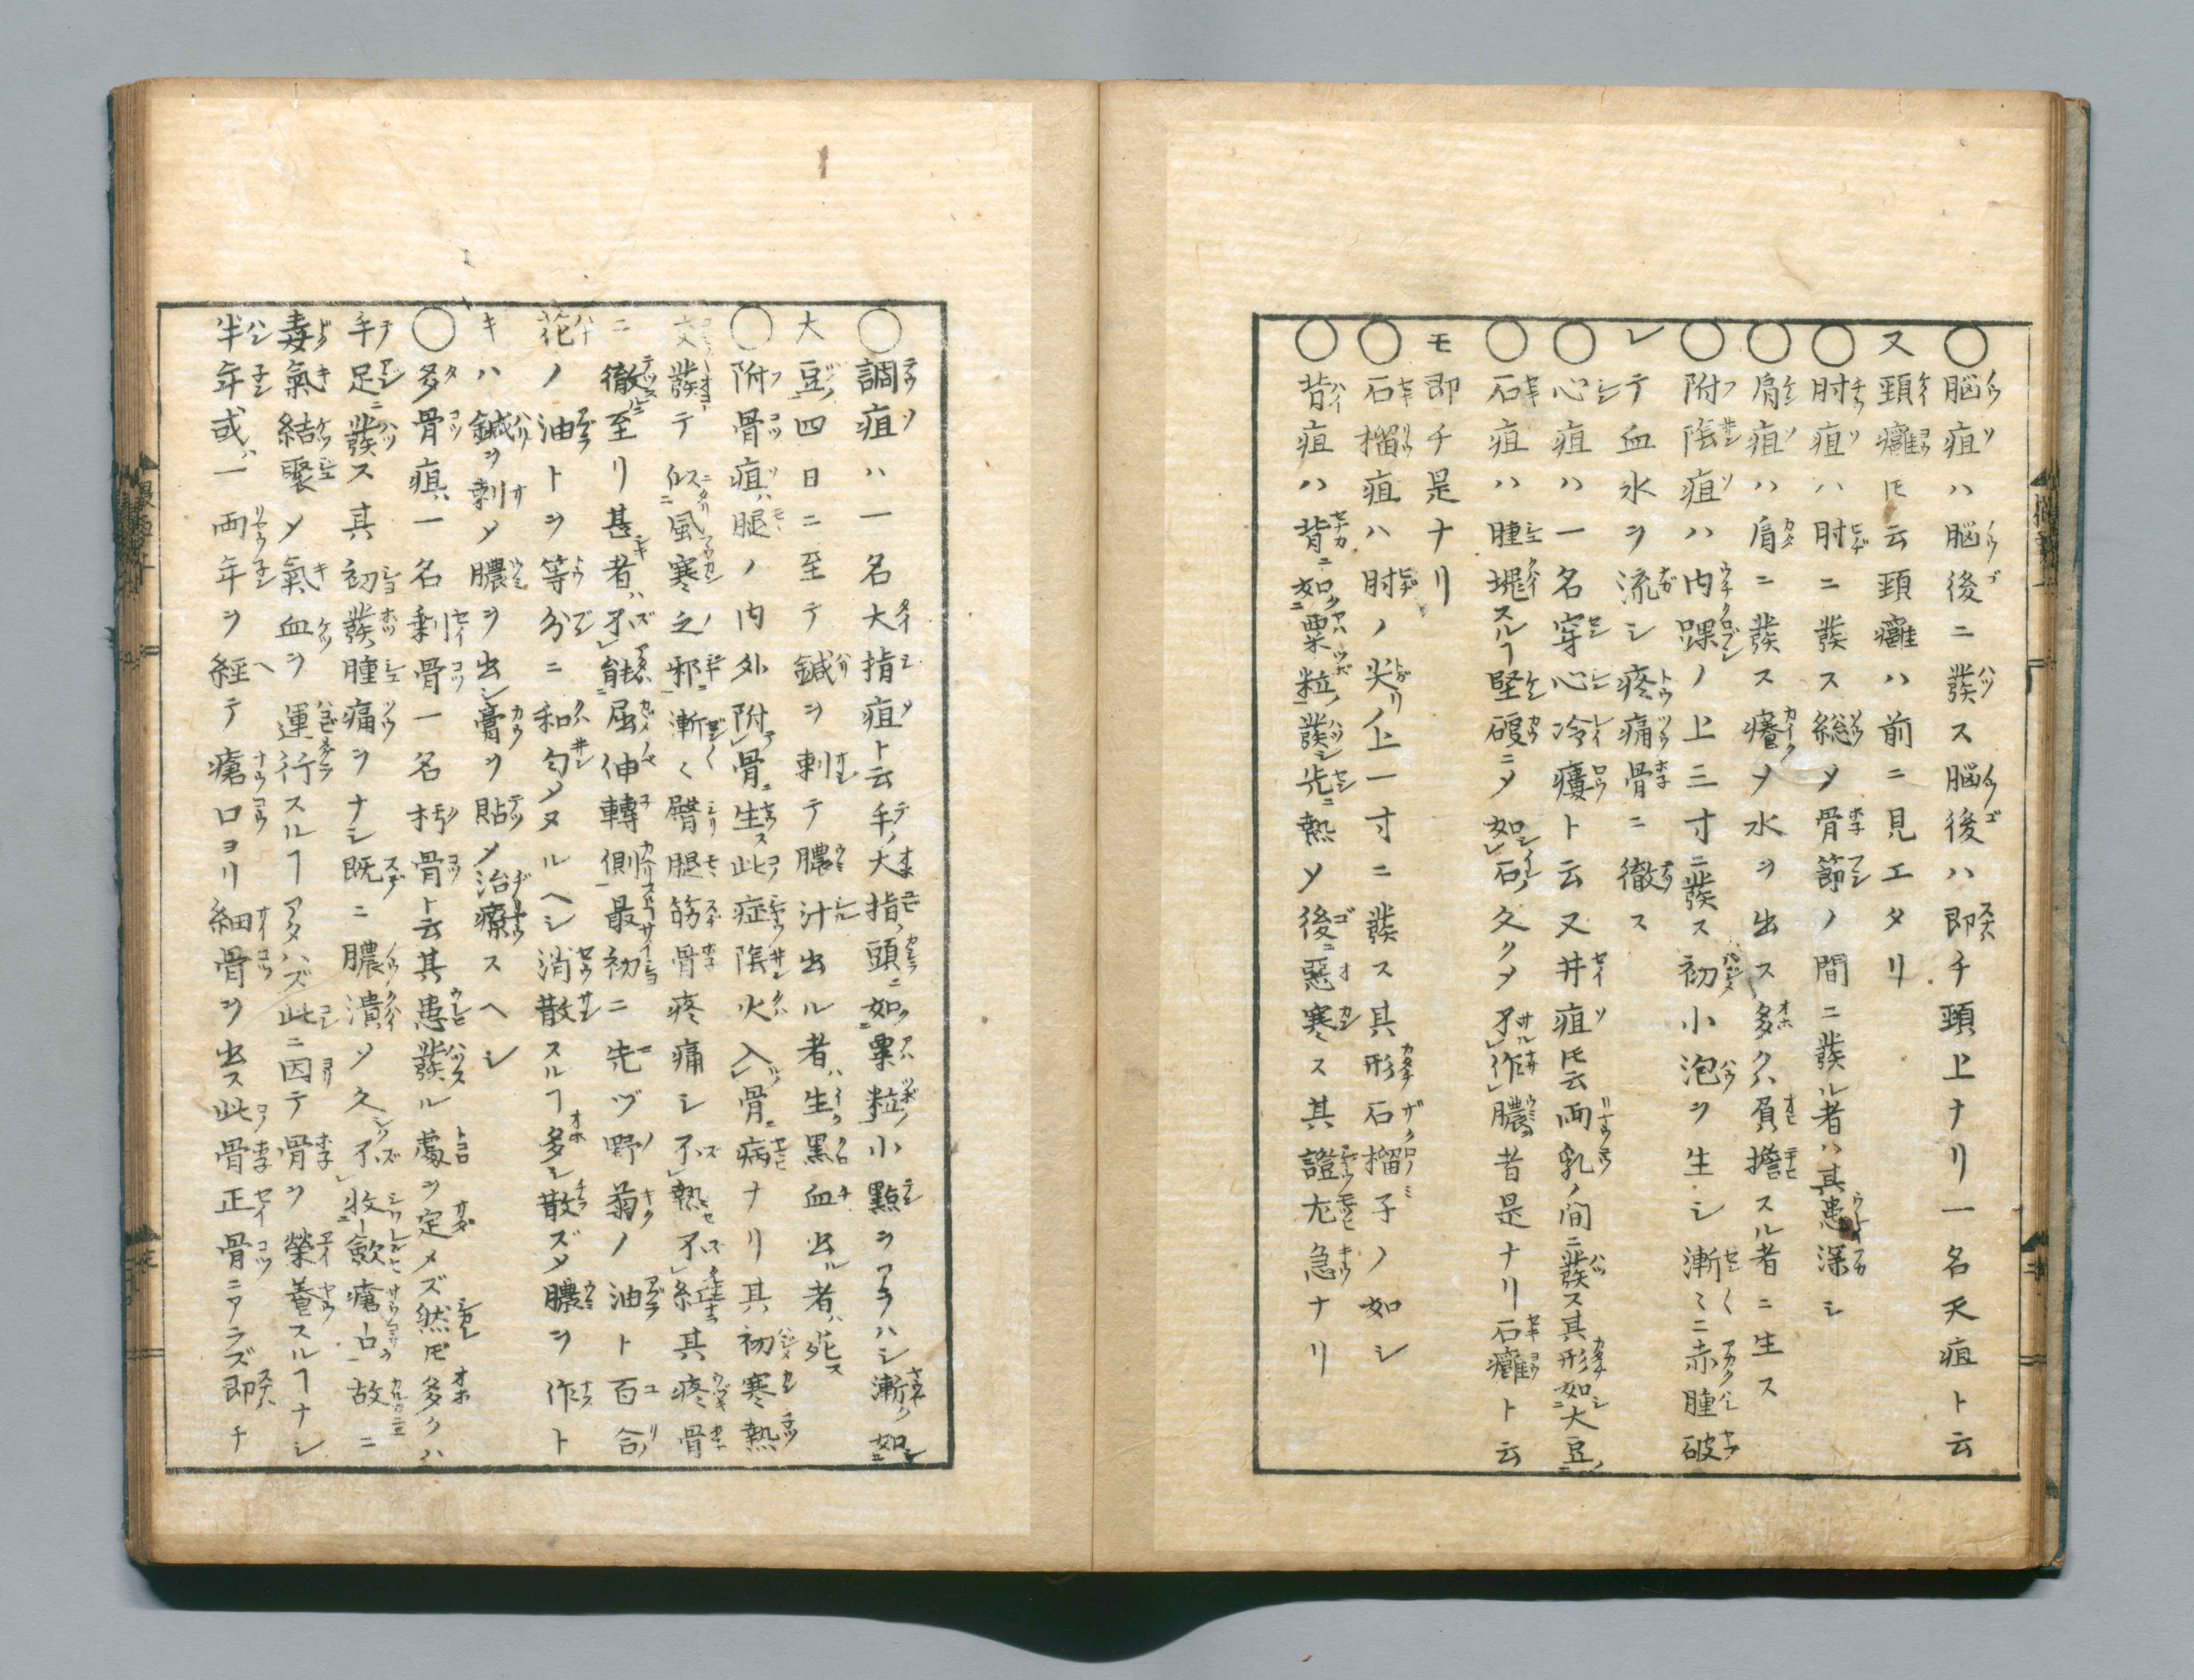 〇脳疽ハ脳後ニ發ス脳後ハ即チ頸上ナリ一名天疽ト云
又頸癰𪜈云頸癰ハ前ニ見エタリ
〇肘疽ハ肘ニ發ス総〆骨節ノ間ニ發ル者ハ其患深シ
〇肩疽ハ肩ニ發ス癢ソ水ヲ出ス多クハ負擔スル者ニ生ス
〇附陰疽ハ内踝ノ上三寸ニ發ス初小泡ヲ生シ漸〻ニ赤腫破
レテ血水ヲ流シ疼痛骨ニ徹ス
〇心疽ハ一名穿心冷瘻ト云又井疽𪜈云両乳ノ間ニ發ス其形如大豆
〇石疽ハ腫塊スルヿ堅硬ニ〆如石久ク〆不作膿者是ナリ石癰ト云
モ即チ是ナリ
〇石榴疽ハ肘ノ尖ノ上一寸ニ發ス其形石榴子ノ如シ
〇背疽ハ背ニ如粟粒發シ先ニ熱ソ後ニ惡寒ス其證尤急ナリ
〇調疽ハ一名大指疽ト云手ノ大指ノ頭ニ如粟粒小點ヲアラハシ漸ク如
大豆四日ニ至テ鍼ヲ刺テ膿汁出ル者ハ生黒血出ル者ハ死ス
〇附骨疽ハ腿ノ内外附骨ニ生ス此症陰火入骨ニ病ナリ其初寒熱
交發テ似風寒之邪ニ漸〻臀腿筋骨疼痛シ不熱不紅其疼骨
ニ徹至リ甚者ハ不能屈伸轉側最初ニ先ヅ野菊ノ油ト百合
花ノ油トヲ等分ニ和匀〆タルヘシ消散スルヿ多シ散ズ〆膿ヲ作ト
キハ鍼ヲ刺〆膿ヲ出シ膏ヲ貼〆治療スヘシ
〇多骨疽ハ一名剩骨一名朽骨ト云其患發ル處ヲ定メズ然𪜈多クハ
手足ニ發ス其初發腫痛ヲナシ既ニ膿潰ソ久ク不收歛瘡口故ニ
毒氣結聚〆氣血ヲ運行スルヿアタハズ此ニ因テ骨ヲ榮養スルヿナシ
半年或ハ一両年ヲ経テ瘡口ヨリ細骨ヲ出ス此骨正骨ニアラズ即チ